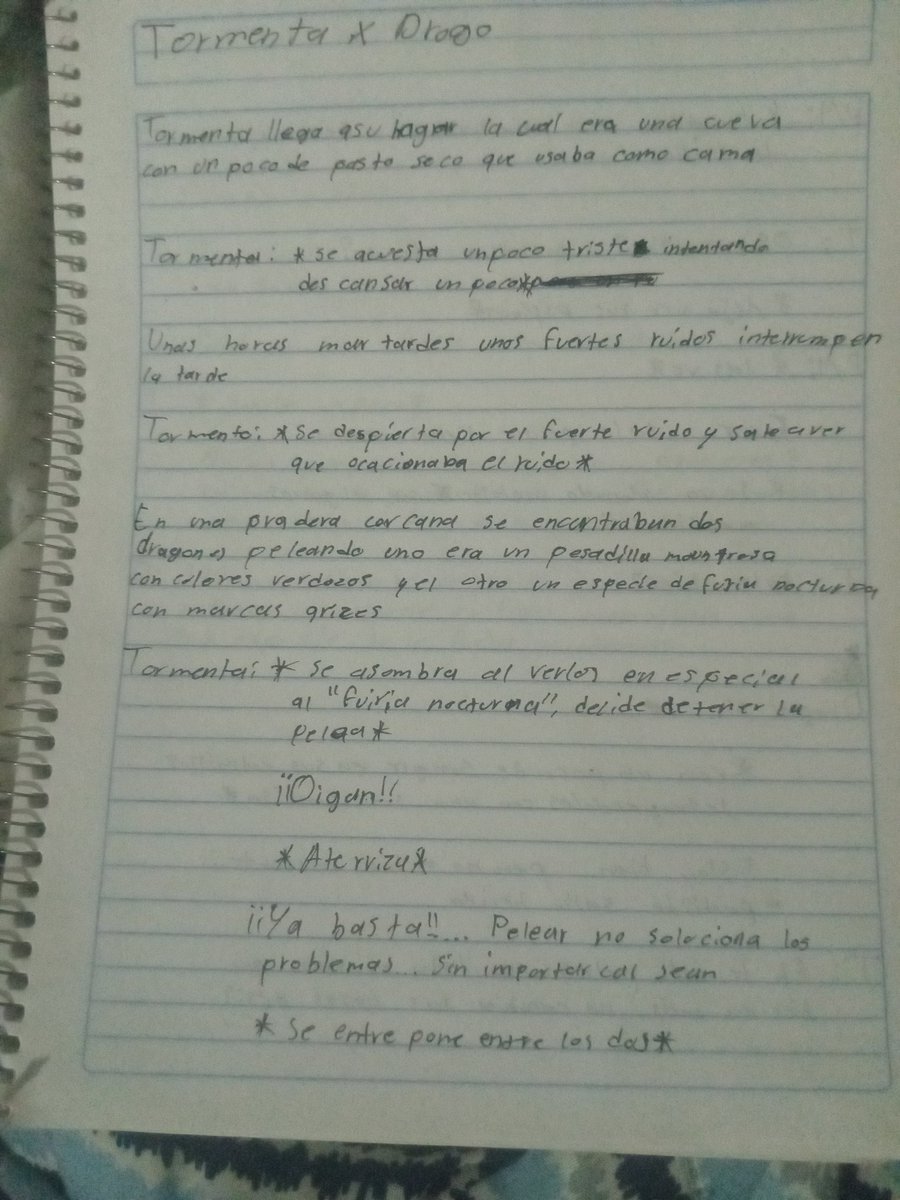 Tormenta x Drogo
Tormenta llega asu hagar la cual era una cueva
con un poco de pasto seco que usaba como cama
Tormenta: *se acuesta unpoco triste intentando
des cansar un poco*
Unas horas mar tardes unos fuertes ruidos interrumpen
la tarde
Tormento: *Se despierta por el fuerte ruido y sale aver
que ocacionaba el ruido*
En una pradera corcana se encontrabun dos
dragones peleando uno era un pesadilla mountrosa
con colores verdozos y el otro un especie de furiu nocturna
con marcas grizes
Tormenta: * se asombra al verlos en especial
al "fuiria nocturna", decide detener la
pelea*
¡¡Oigan!!
*Aterriza*
¡¡Ya basta!!... Pelear no soluciona los
problemas... Sin importar cal sean
*Se entre pone entre los dos*